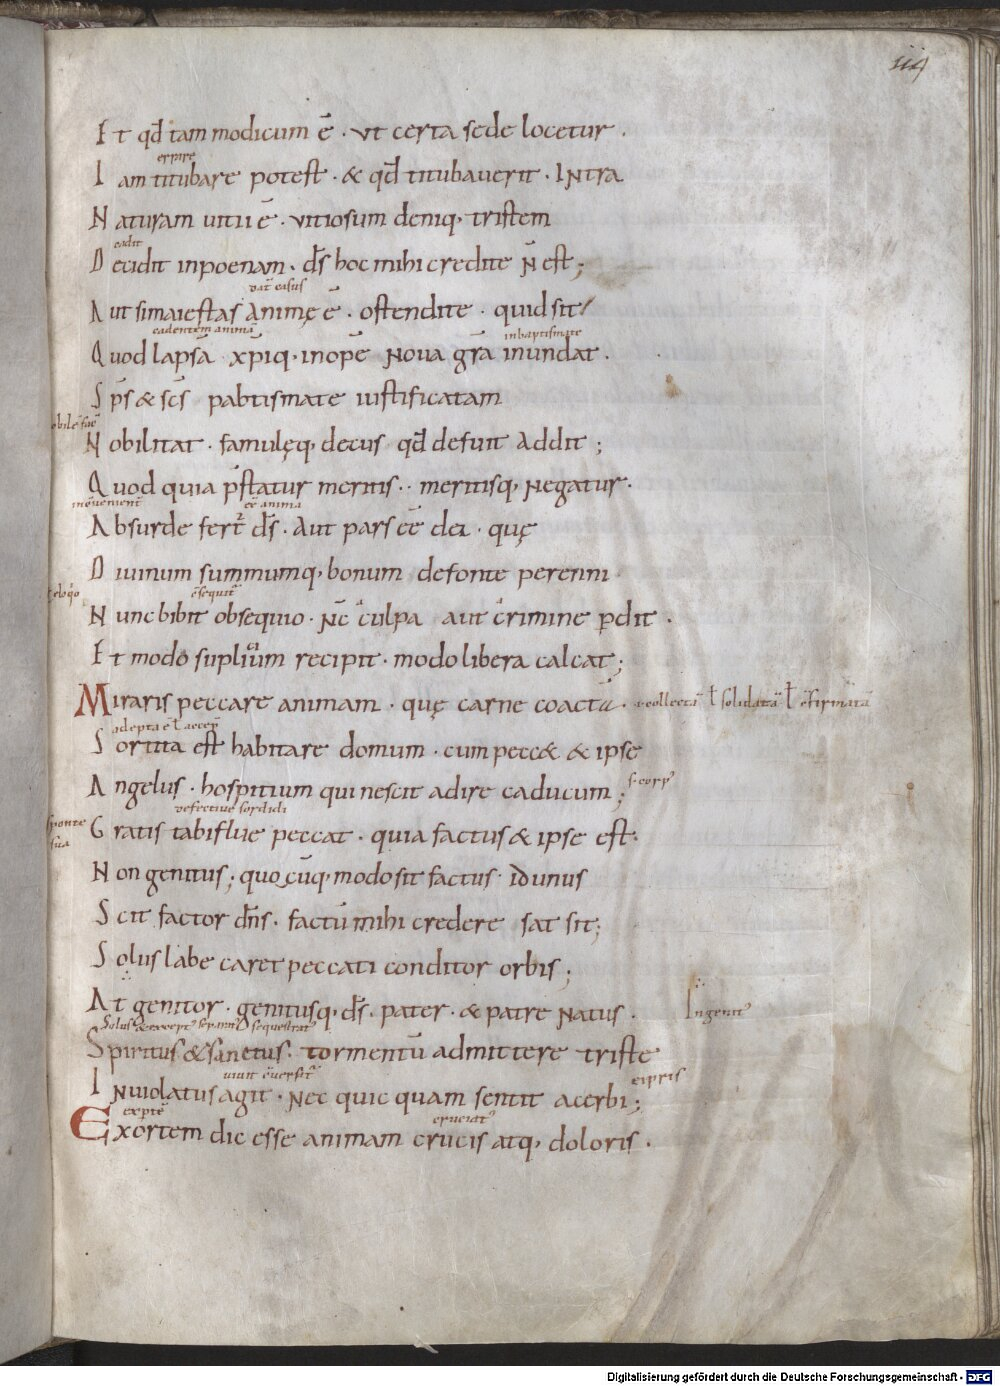 114
Et qđ tam modicum ē · ut certa sede locetur .
errare
Iam titubare potest · & qđ titubaverit · Intra
Naturam uitii ē · vitiosum deniq, tristem
cadit
Decidit inpoenam · d̄s hoc mihi credite n̄ est ;
casus
Aut simaiestas animę ē · ostendite · quid sit /
cadentem animā
inbaptismate
Quod lapsā xp̄iq · inopē nova grā inundat .
Sp̄s & sc̄s pabtismate iustificatam
Nobilitat · famulęq, decus qđ defuit addit ;
Quod quia p̄statur meritis · · meritisq, negatur ·
eē anima
Absurde fert᷑ d̄s · Aut pars eē dei · quę
Diuinum summumq, bonum defonte perenni ·
Nunc bibit obsequio · n̄c culpa aut crimine p̱dit ·
Et modo suplium recipit · modo libera calcat ;
Miraris peccare animam · quę carne coacta · collectā ł solidatā ł
Sortita est habitare domum · cum pecc& & ipse
Angelus · hospitium qui nescit adire caducum ;
defectiue sordidi
sponte
sua
Gratis tabiflue peccat · quia factus & ipse est ·
Non genitus ; quocūq, modo sit factus · id unus
Scit factor dn̄s · factū mihi credere sat sit ;
Solus labe caret peccati conditor orbis ;
At genitor · genitusq, d̄s · pater · & patre natus ·
Spiritus & sanctus · tormentū admittere triste
uiuit
Inuiolatus agit · Nec quic quam sentit acerbi ;
expertē
Exortem dic esse animam crucis atq, doloris ·
Digitalisierung gefördert durch die Deutsche Forschungsgemeinschaft - DFG